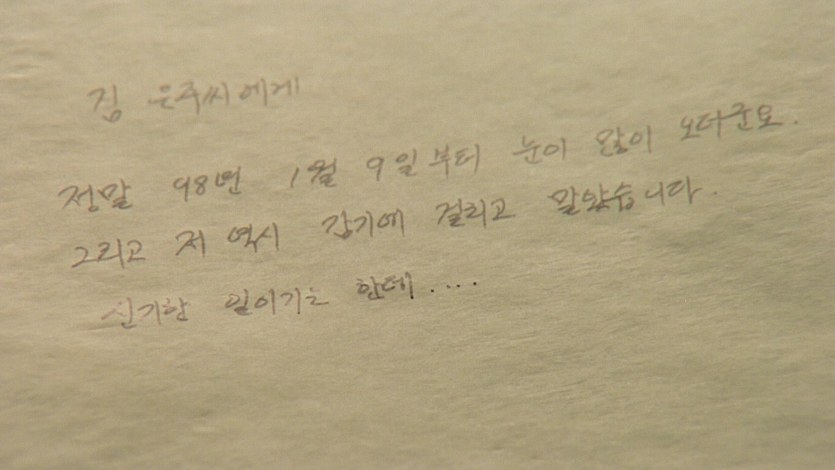 김 은주씨에게
정말 98년 1월 9일부터 눈이 많이 오더군요.
그리고 저 역시 감기에 걸리고 말았습니다.
신기한 일이기는 한데....